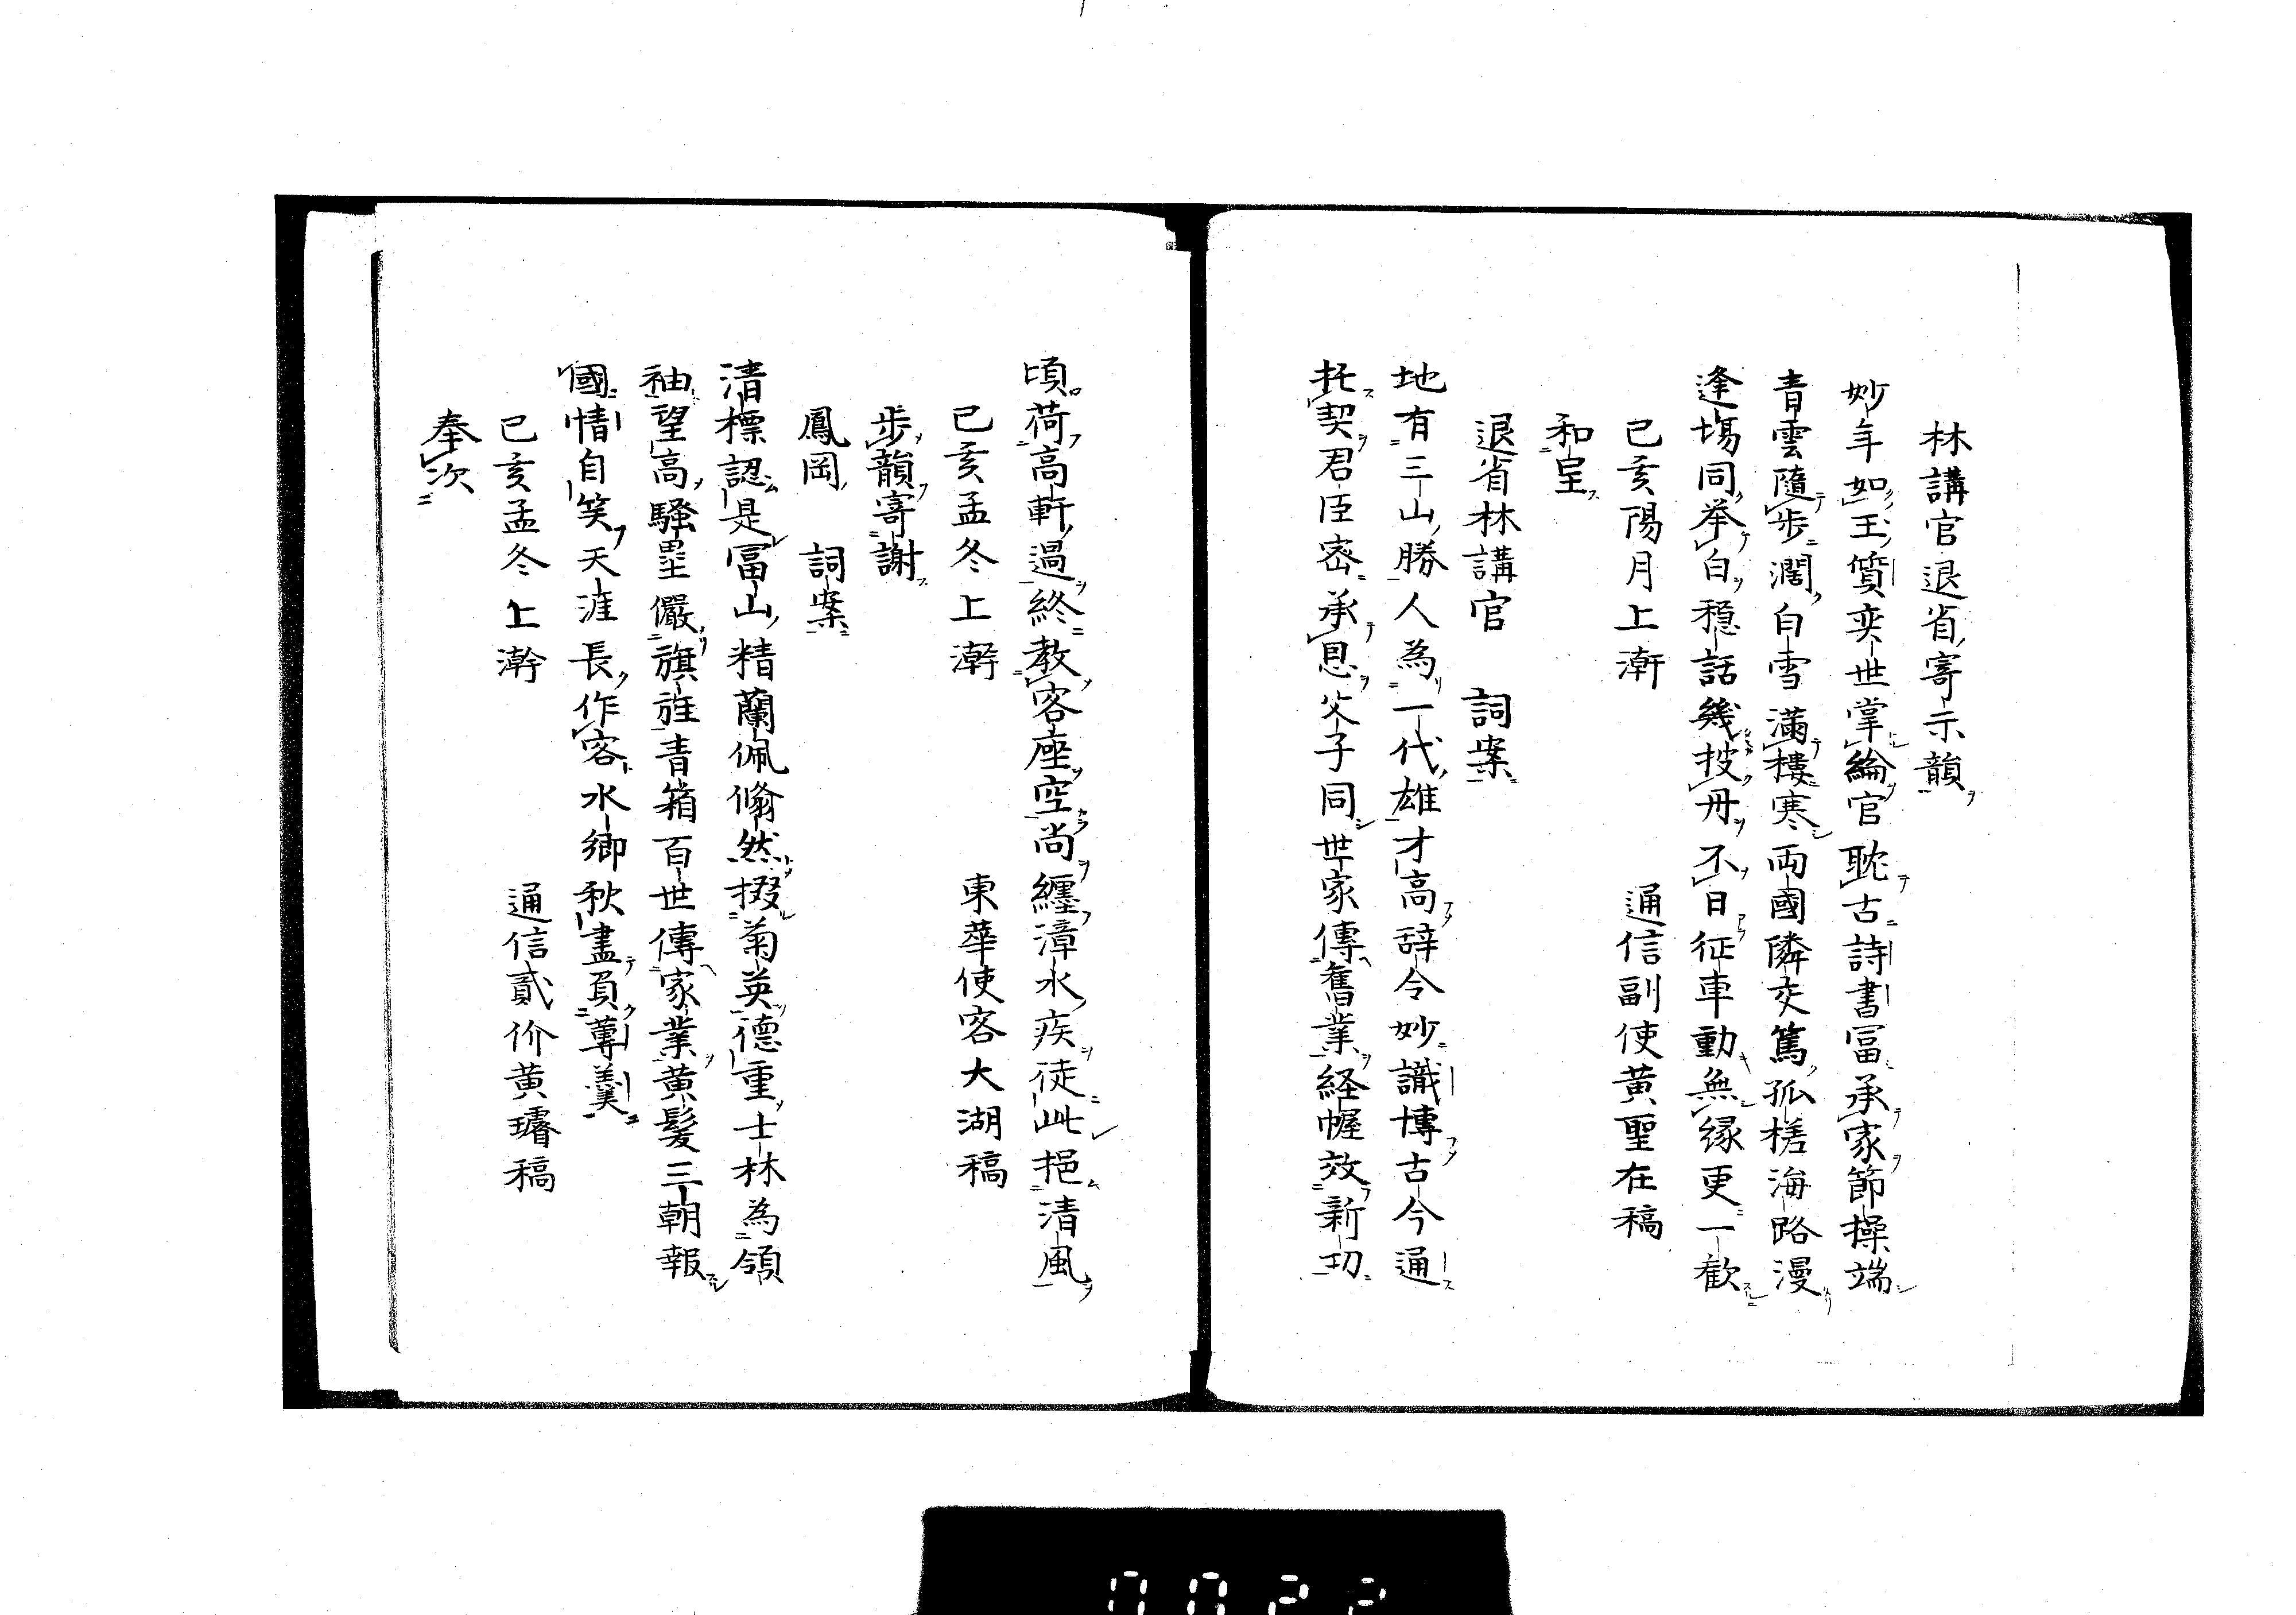 林講官退省寄示韻
妙年如玉質奕世掌綸官耽古詩書冨承家節操端
青雲隨歩濶白雪滿樓寒両國隣交篤孤槎海路漫
逢塲同举白穏話幾披丹不日征車動無縁更一歓
己亥陽月上澣　通信副使黄聖在稿
和呈
退省林講官　詞案
地有三山勝人為一代雄才高辞令妙識博古今通
托契君臣宻承恩父子同世家傳舊業経幄效新功
頃荷高軒過終教客座空尚纏漳水疾徒此挹清風
己亥孟冬上澣　東華使客大湖稿
歩韻寄謝
鳳岡　詞案
清標認是冨山精蘭佩翛然掇菊英徳重士林為領
袖望高騷壘儼旗旌青箱百世傳家業黄髪三朝報
國情自笑天涯長作客水鄉秋盡負蓴羹
己亥孟冬上澣　通信貳价黄璿稿
奉次
0022